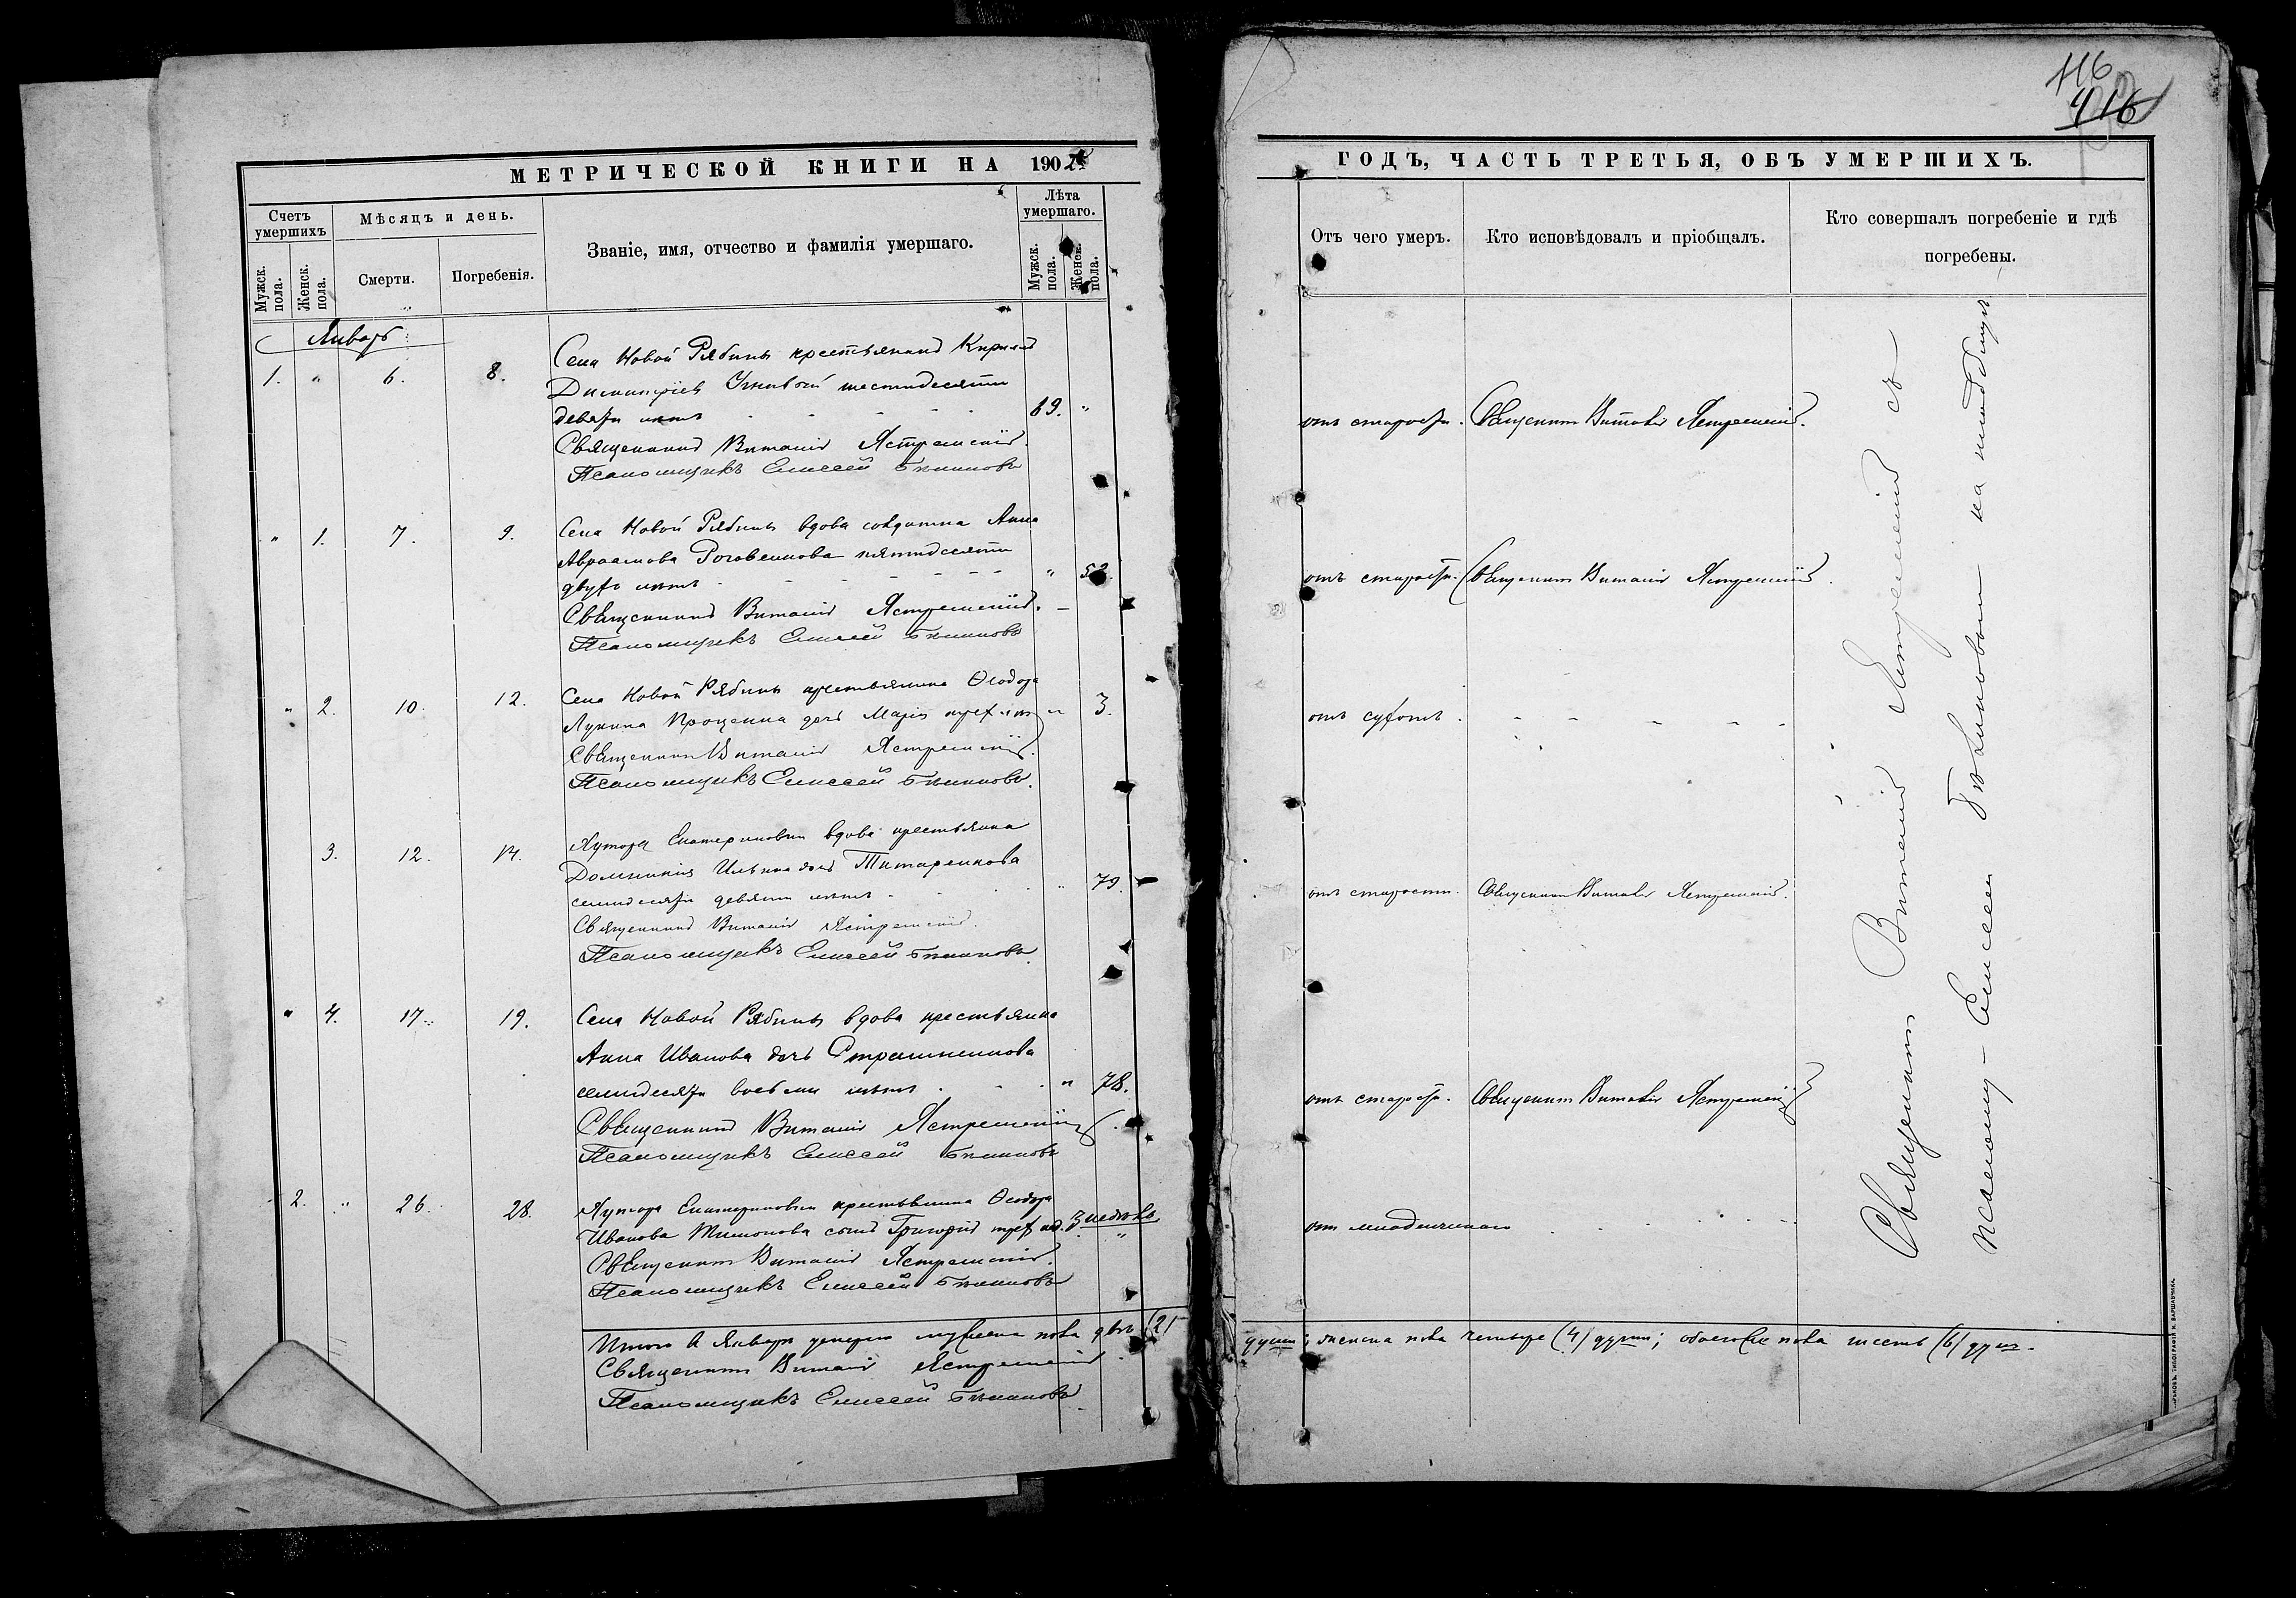 МЕТРИЧЕСКОЙ КНИГИ НА 1902
Счетъ умершихъ
Мѣсяцъ и день.
Званіе, имя, отчество и фамилія умершаго.
Лѣта умершаго.
Мужск. пола.
Женск. пола.
Смерти.
Погребенія.
Мужск. пола.
Женск. пола.
Январь
1. " 6. 8.
Села Новой Рябины крестьянинъ Кирилъ
Димитріевъ шестидесяти
девяти лѣтъ 69. "
Священникъ Виталій Ястремскій.
Псаломщикъ Елиссей Бѣликовъ
" 1. 7. 9.
Села Новой Рябины вдова солдатка Анна
Авраамова Роговенкова пятидесяти
двухъ лѣтъ " 52.
Священникъ Виталій Ястремскій.
Псаломщикъ Елиссей Бѣликовъ
" 2. 10. 12.
Села Новой Рябины крестьянина Ѳеодора
Лукина Проценка дочь Марія трехъ лѣтъ " 3.
Священникъ Виталій Ястремскій.
Псаломщикъ Елиссей Бѣликовъ.
3. 12. 14.
Хутора Екатериновки вдова крестьянка
Домникія Ильина дочь Титаренкова
семидесяти девяти лѣтъ " 79.
Священникъ Виталій Ястремскій.
Псаломщикъ Елиссей Бѣликовъ.
" 4. 17. 19.
Села Новой Рябины вдова крестьянка
Анна Иванова дочь
семидесяти восьми лѣтъ " 78.
Священникъ Виталій Ястремскій.
Псаломщикъ Елиссей Бѣликовъ
2. " 26. 28.
Хутора Екатериновки крестьянина Ѳеодора
Иванова сынъ Григорій трехъ нед. 3 недѣль "
Священникъ Виталій Ястремскій.
Псаломщикъ Елиссей Бѣликовъ
Итого въ Январѣ умерло мужеска пола двѣ (2)
Священникъ Виталій Ястремскій.
Псаломщикъ Елиссей Бѣликовъ
116
416
ГОДЪ, ЧАСТЬ ТРЕТЬЯ, ОБЪ УМЕРШИХЪ.
Отъ чего умеръ.
Кто исповѣдовалъ и пріобщалъ.
Кто совершалъ погребеніе и гдѣ
погребены.
отъ старости. Священникъ Виталій Ястремскій.
отъ старости. Священникъ Виталій Ястремскій.
отъ сухотъ.
отъ старости. Священникъ Виталій Ястремскій.
отъ старости. Священникъ Виталій Ястремскій
отъ младенческаго
Священникъ Виталій Ястремскій съ
псаломщ. Елисеем Бѣликовым на кладбищѣ
души; женска пола четыре (4) души; обоего пола шесть (6) душъ.